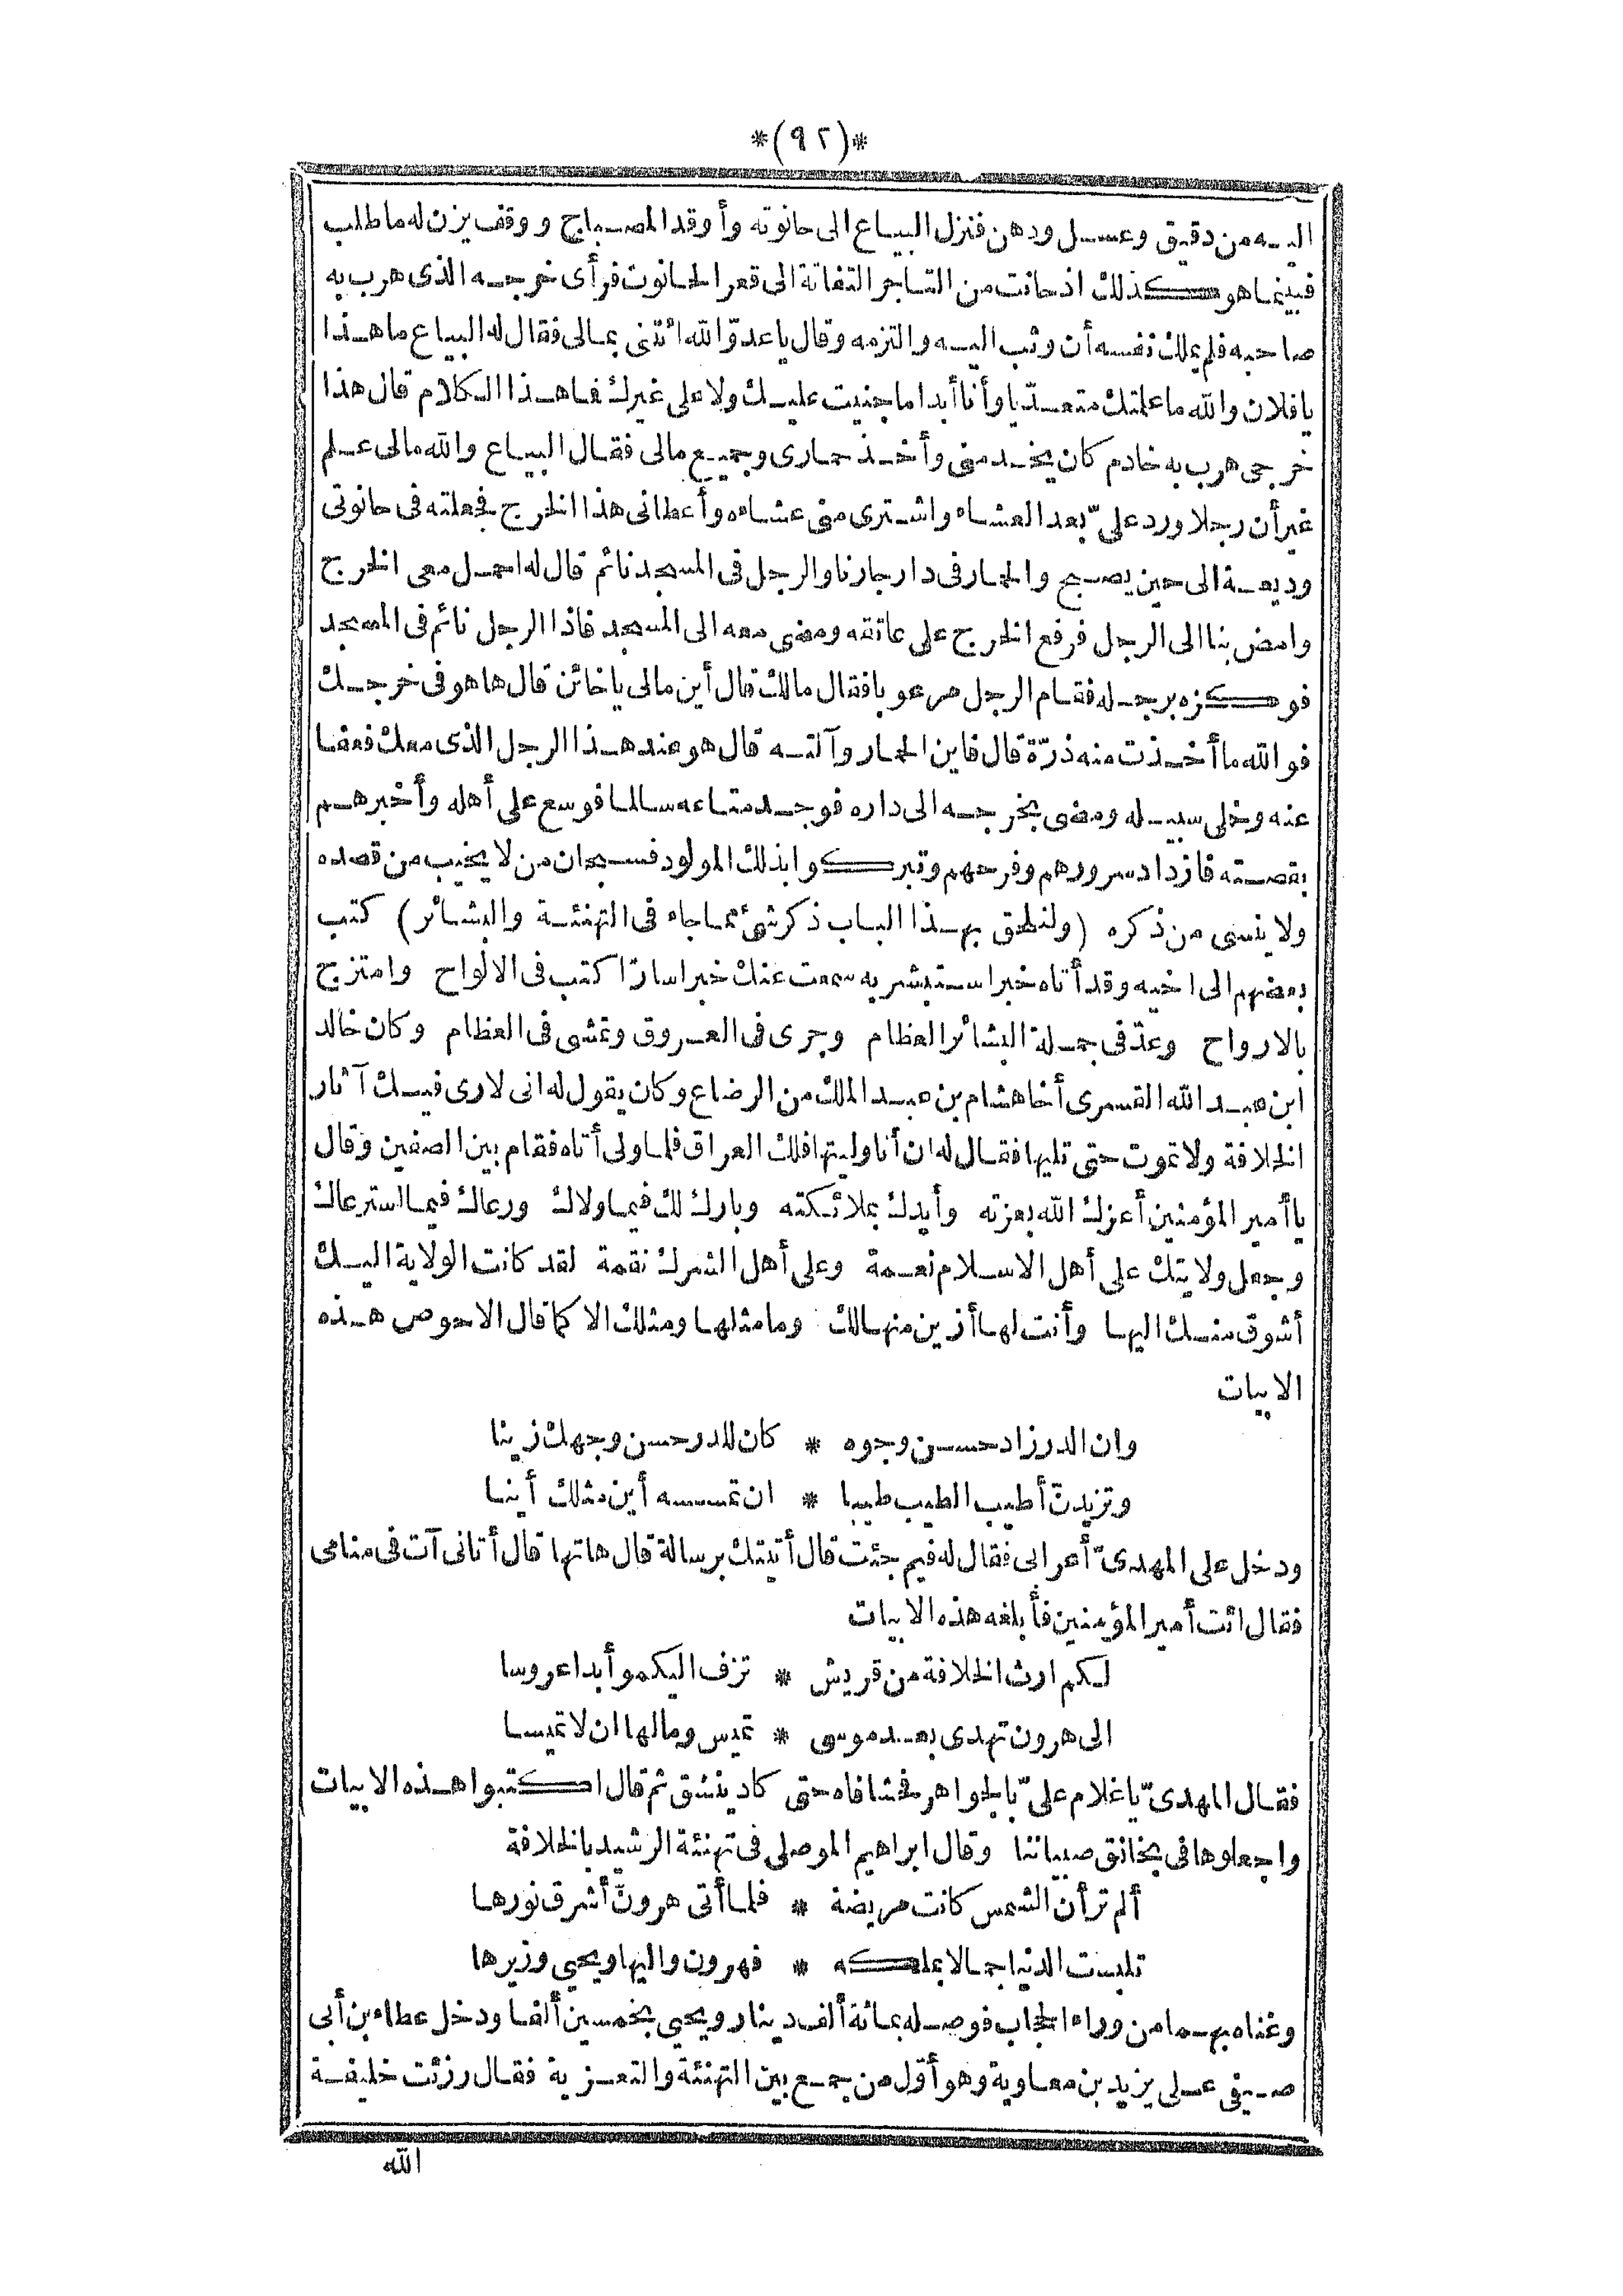 *(٩٢)*
اليه من دقيق وعسل ودهن فنزل البياع الى حانوته وأوقد المصباح ووقف يزن له ما طلب
فبينما هو كذلك اذ حانت من التاجر التفاتة الى قعر الحانوت فرأى خرجه الذى هرب به
صاحبه فلم يملك نفسه أن وثب اليه والتزمه وقال يا عدوّ الله ائتنى بمالى فقال له البياع ما هذا
يا فلان والله ما علمتك متعدّيا وأنا أبدا ما جنيت عليك ولا على غيرك فما هذا الكلام قال هذا
خرجى هرب به خادم كان يخدمنى وأخذ حمارى وجميع مالى فقال البياع والله مالى علم
غير أن رجلا ورد علىّ بعد العشاء واشترى منى عشاءه وأعطانى هذا الخرج فجعلته فى حانوتى
وديعة الى حين يصبح والحمار فى دار جارنا والرجل فى المسجد نائم قال له احمل معى الخرج
وامض بنا الى الرجل فرفع الخرج على عاتقه ومضى معه الى المسجد فاذا الرجل نائم فى المسجد
فوكزه برجله فقام الرجل مرعوبا فقال مالك قال أين مالى يا خائن قال ها هو فى خرجك
فوالله ما أخذت منه ذرّة قال فاين الحمار وآلته قال هو عند هذا الرجل الذى معك فعفا
عنه وخلى سبيله ومضى بخرجه الى داره فوجد متاعه سالما فوسع على أهله وأخبرهم
بقصته فازداد سرورهم وفرحهم وتبركوا بذلك المولود فسبحان من لا يخيب من قصده
ولا ينسى من ذكره (ولنلحق بهذا الباب ذكر شئ مما جاء فى التهنئة والبشائر) كتب
بعضهم الى اخيه وقد أتاه خبر استبشر به سمعت عنك خبرا سارّا كتب فى الالواح وامتزج
بالارواح وعدّ فى جملة البشائر العظام وجرى فى العروق وتمشى فى العظام وكان خالد
ابن عبد الله القسرى أخا هشام بن عبد الملك من الرضاع وكان يقول له انى لارى فيك آثار
الخلافة ولا تموت حتى تليها فقال له ان أنا وليتها فلك العراق فلما ولى أتاه فقام بين الصفين وقال
يا أمير المؤمنين أعزك الله بعزته وأيدك بملائكته وبارك لك فيما ولاك ورعاك فيما استرعاك
وجعل ولايتك على أهل الاسلام نعمة وعلى أهل الشرك نقمة لقد كانت الولاية اليك
أشوق منك اليها وأنت لها أزين منها لك وما مثلها ومثلك الا كما قال الاحوص هذه
الابيات
وان الدر زاد حسن وجوه * كان للدر حسن وجهك زينا
وتزيدنّ أطيب الطيب طيبا * ان تمسسه أين مثلك أينا
ودخل على المهدىّ أعرابى فقال له فيم جئت قال أتيتك برسالة قال هاتها قال أتانى آت فى منامى
فقال ائت أمير المؤمنين فأبلغه هذه الابيات
لكم ارث الخلافة من قريش * تزف اليكمو أبدا عروسا
الى هرون تهدى بعد موسى * تميس وما لها ان لا تميسا
فقال المهدىّ يا غلام علىّ بالجواهر فحشا فاه حتى كاد ينشق ثم قال اكتبوا هذه الابيات
واجعلوها فى بخانق صبياننا وقال ابراهيم الموصلى فى تهنئة الرشيد بالخلافة
ألم تر أن الشمس كانت مريضة * فلما أتى هرون أشرق نورها
تلبست الدنيا جمالا بملكه * فهرون واليها ويحيى وزيرها
وغناه بهما من وراء الحجاب فوصله بمائة ألف دينار ويحيى بخمسين ألفا ودخل عطاء بن أبى
صيفى على يزيد بن معاوية وهو أوّل من جمع بين التهنئة والتعزية فقال رزئت خليفة
الله